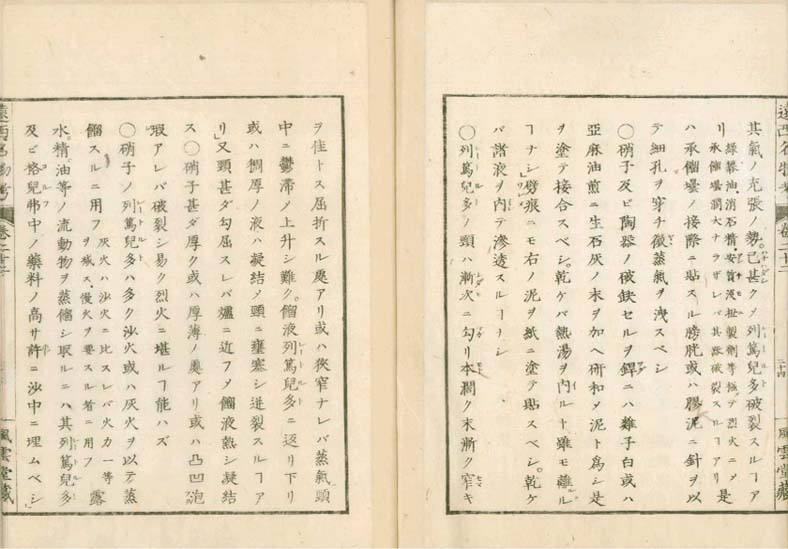 其氣ノ充張ノ勢已甚クメ列篤兒多破裂スルヿア
リ綠礬油消石精安質没扯製劑等ヲ烈火ニメ
承餾壜濶大ナラザレバ其獸破裂スルヿアリ是
ハ承餾壜ノ接際ニ貼スル膀胱或ハ膠泥ニ針ヲ以
テ細孔ヲ穿チ微蒸氣ヲ洩スベシ
〇硝子及ビ陶器ノ破缺セルヲ銲ニハ雞子白或ハ
亞麻油煎ニ生石灰ノ末ヲ加ヘ研和メ泥ト爲シ是
ヲ塗テ接合スベシ乾ケバ熱湯ヲ内ルト雖モ離ル
ヿナシ劈痕ニモ右ノ泥ヲ紙ニ塗テ貼スベシ乾ケ
バ諸液ヲ内テ滲透スルヿナシ
〇列篤兒多ノ頸ハ漸次ニ勾リ本濶ク末漸ク窄キ
遠西名物考 卷二十二 二十四 風雲堂藏
ヲ佳トス屈折スル處アリ或ハ狹窄ナレバ蒸氣頸
中ニ鬱滯ノ上升シ難ク餾液列篤兒多ニ返リ下リ
或ハ稠厚ノ液ハ凝結メ頸ニ壅塞シ迸裂スルヿア
リ又頸甚ダ勾屈スレバ爐ニ近フメ餾液熱シ凝結
ス〇硝子甚ダ厚ク或ハ厚薄ノ處アリ或ハ凸凹泡
瑕アレバ破裂シ易ク烈火ニ堪ルヿ能ハズ
〇硝子ノ列篤兒多ハ多ク沙火或ハ灰火ヲ以テ蒸
餾スルニ用フ灰火ハ沙火ニ比スレバ火力一等
ヲ減ス慢火ヲ要スル者ニ用フ露
水精油等ノ流動物ヲ蒸餾シ取ルニハ其列篤兒多
及ビ格兒弗中ノ藥料ノ高サ許ニ沙中ニ埋ムベシ
風雲堂藏